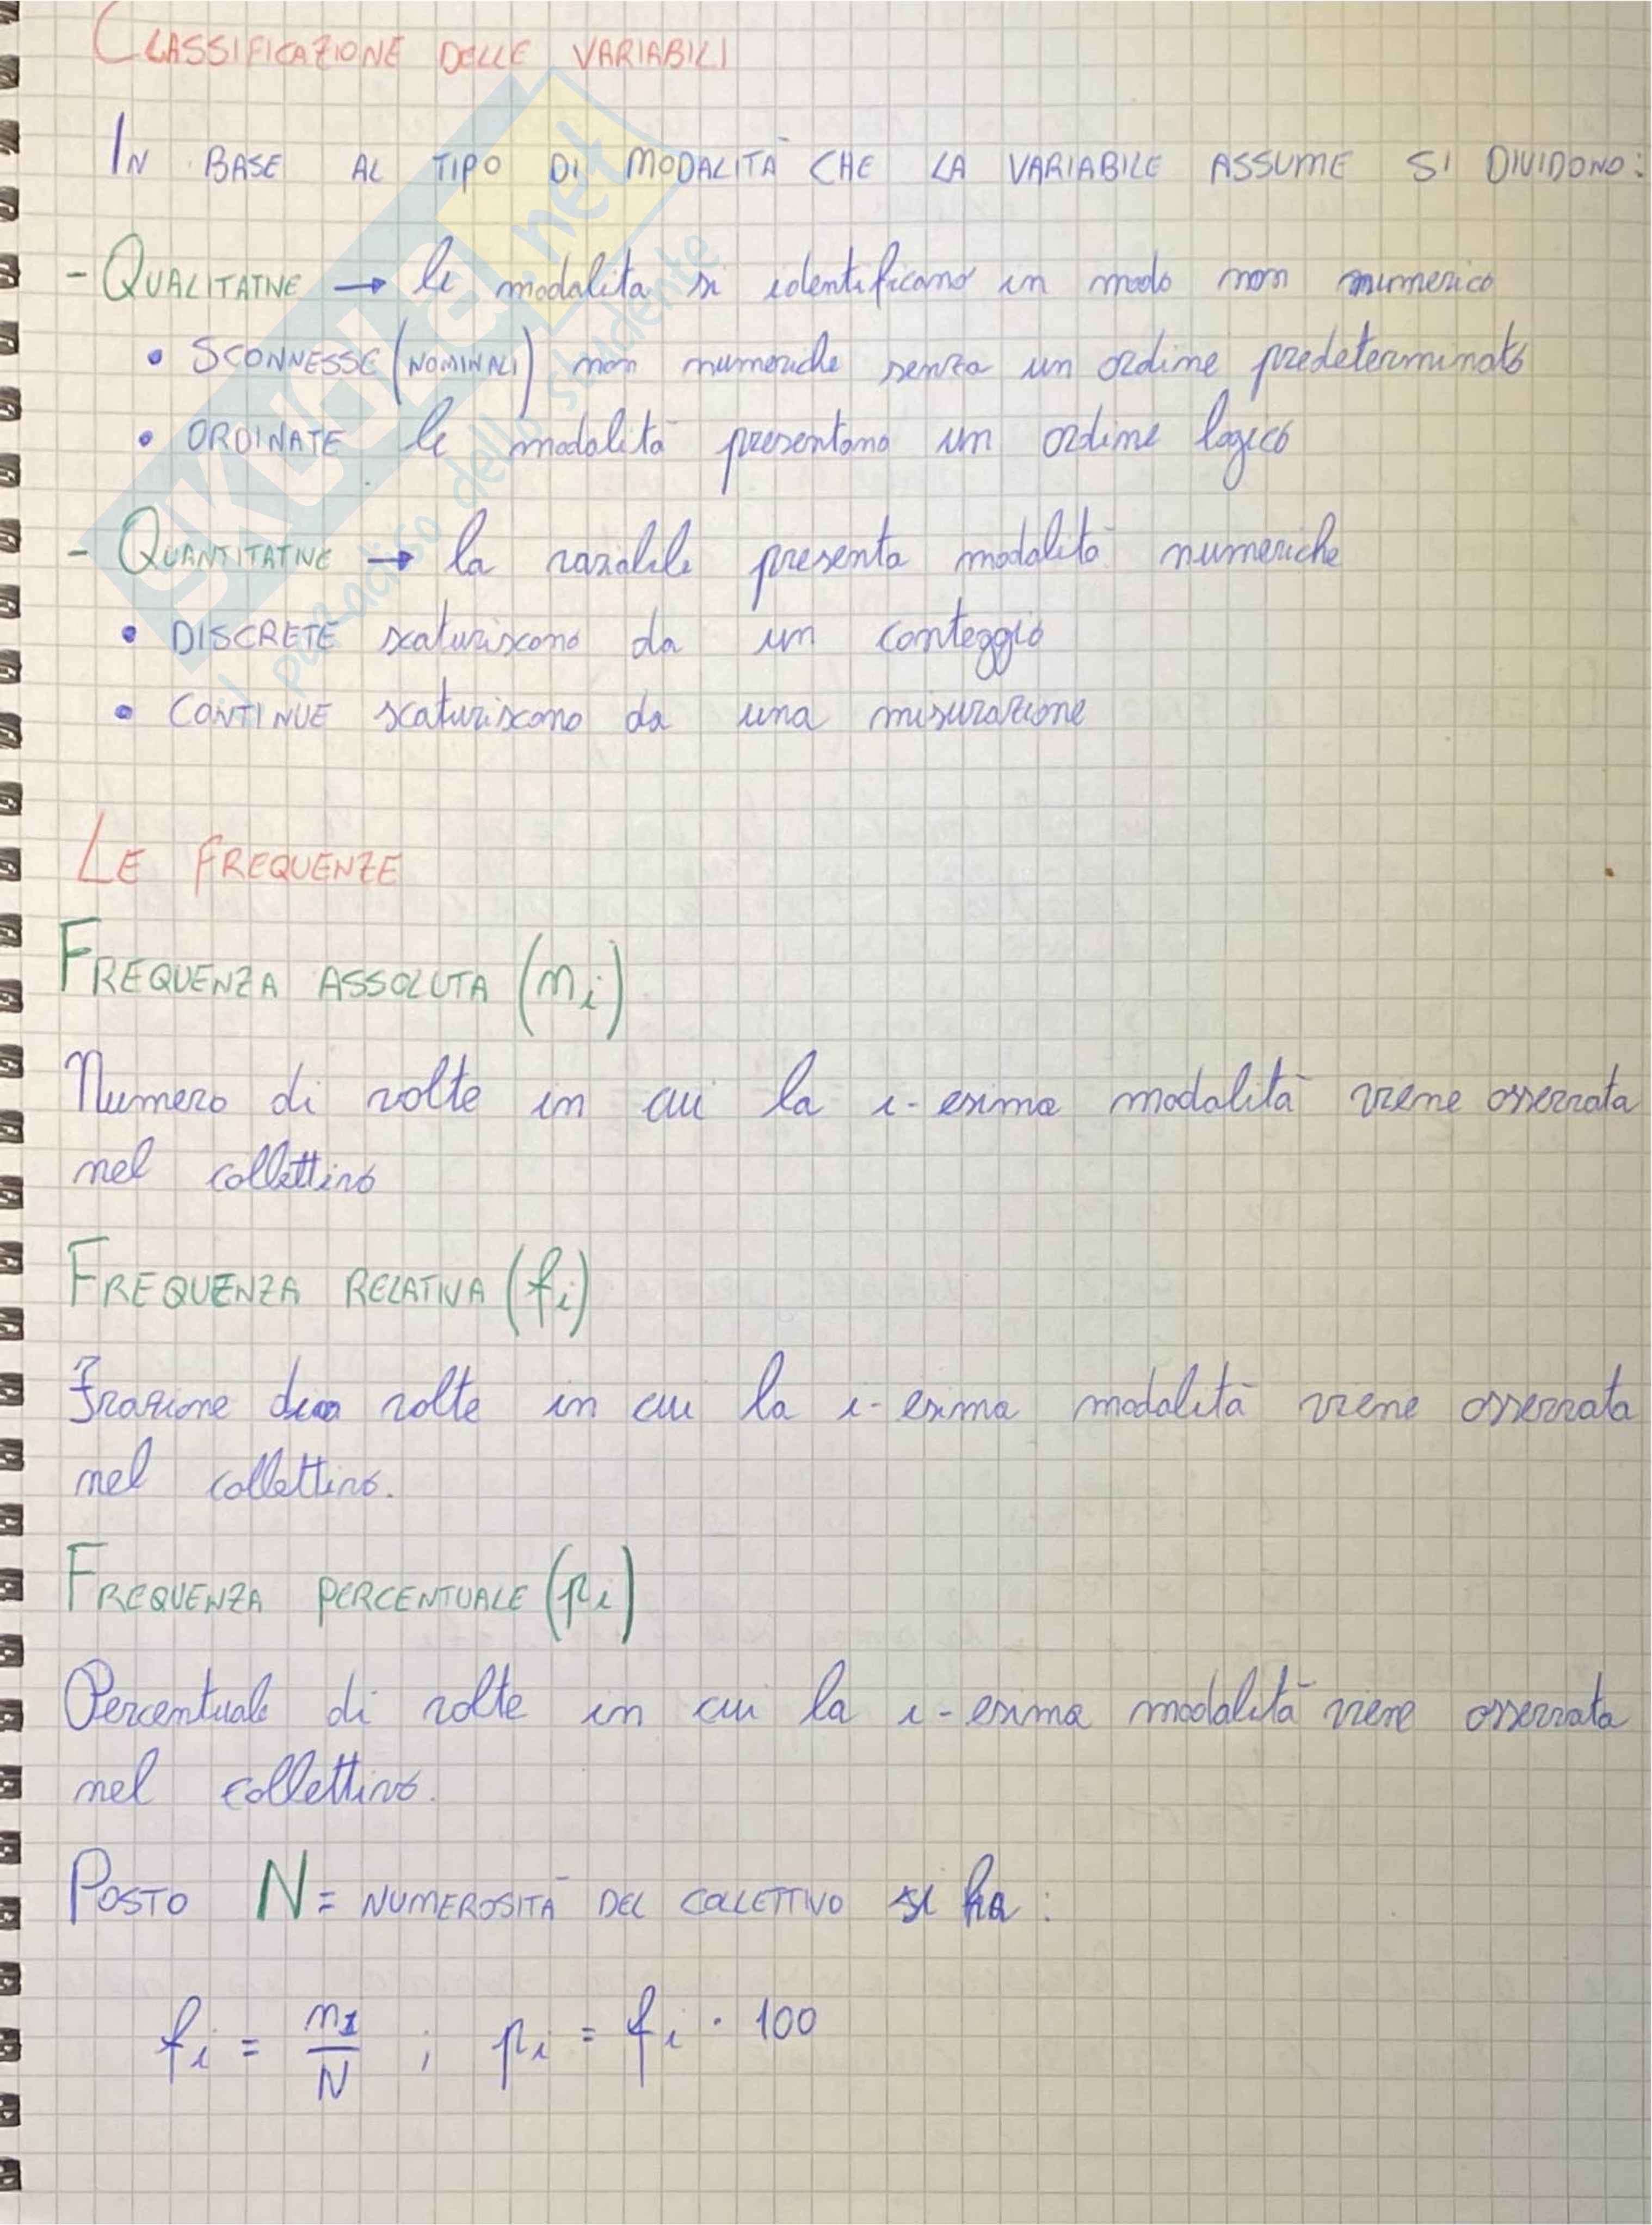 CLASSIFICAZIONE DELLE VARIABILI
IN BASE AL TIPO DI MODALITÀ CHE LA VARIABILE ASSUME SI DIVIDONO:
- QUALITATIVE → le modalità si identificano in modo non numerico
• SCONNESSE (NOMINALI) non numeriche senza un ordine predeterminato
• ORDINATE le modalità presentano un ordine logico
- QUANTITATIVE → la variabile presenta modalità numeriche
• DISCRETE scaturiscono da un conteggio
• CONTINUE scaturiscono da una misurazione
LE FREQUENZE
FREQUENZA ASSOLUTA (ni)
Numero di volte in cui la i-esima modalità viene osservata
nel collettivo
FREQUENZA RELATIVA (fi)
Frazione di volte in cui la i-esima modalità viene osservata
nel collettivo.
FREQUENZA PERCENTUALE (pi)
Percentuale di volte in cui la i-esima modalità viene osservata
nel collettivo.
POSTO N = NUMEROSITÀ DEL COLLETTIVO si ha:
fi = n1/N ; pi = fi · 100
SKUOLA.net
il paradiso dello studente